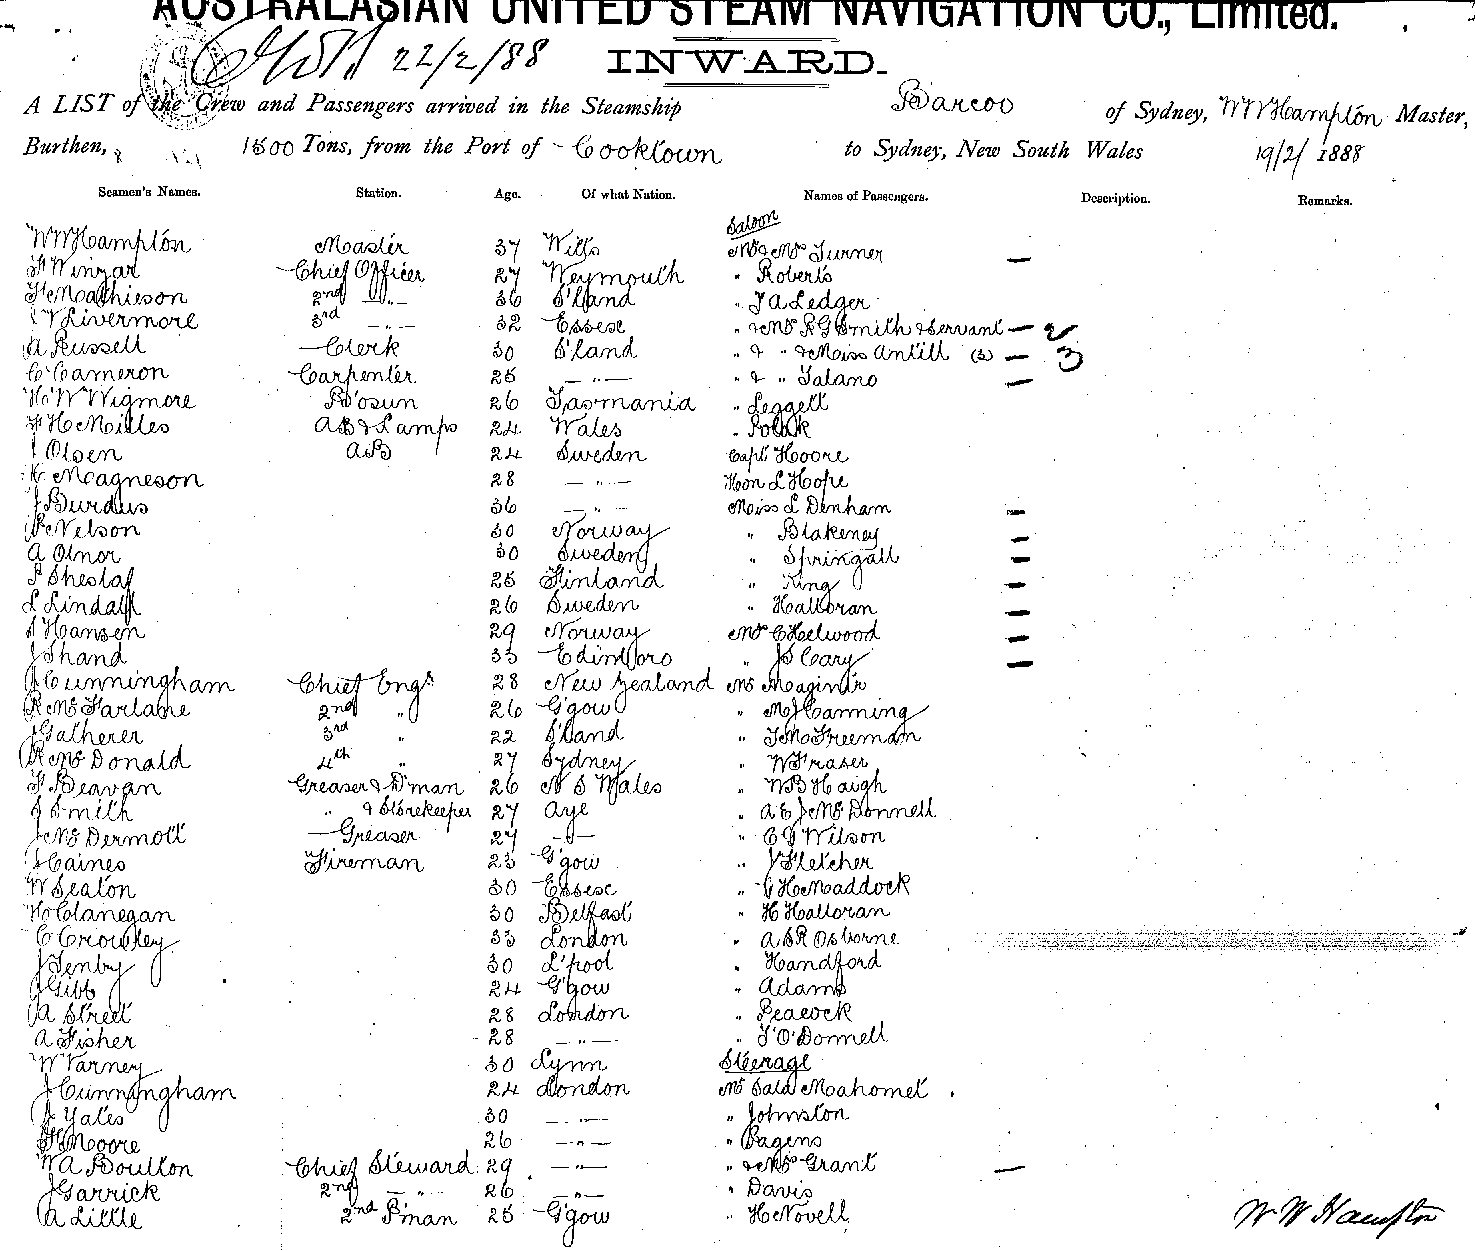 AUSTRALASIAN UNITED STEAM NAVIGATION CO., Limited.
22/2/88 INWARD.
A LIST of the Crew and Passengers arrived in the Steamship Barcoo of Sydney, WW Hampton Master,
Burthen, 1500 Tons, from the Port of Cooktown to Sydney, New South Wales 19/2/ 1888
Seamen's Names. Station. Age. Of what Nation. Names of Passengers. Description. Remarks.
Saloon
WW Hampton Master 37 Wilts Mr & Mrs Turner —
Winzar Chief Officer 27 Weymouth " Roberts
Mathieson 2nd —"— 36 S'land " J A Ledger
Livermore 3rd —"— 32 Essex " & Mrs R G Smith & Servant — 2
A Russell Clerk 30 S'land " & " & Miss Antill (3) — 3
C Cameron Carpenter 25 —"— " & " Talano —
H W Wigmore Bo'sun 26 Tasmania " Leggett
F H Milles AB & Lamps 24 Wales " Polak
Olsen AB 24 Sweden Capt Hoore
K Magneson 28 —"— Hon L Hope
J Burdus 36 —"— Miss L Denham —
P Nelson 30 Norway " Blakeney —
A Olnor 30 Sweden " Springall —
Sheslaf 25 Finland " King —
L Lindall 26 Sweden " Halloran —
Hansen 29 Norway Mrs C Heelwood —
J Shand 33 Edinboro " J S Cary —
J Cunningham Chief Engr 28 New Zealand Mr Maginir
R McFarlane 2nd " 26 G'gow " M J Canning
J Gatherer 3rd " 22 S'land " J McFreeman
R McDonald 4th " 27 Sydney " W Fraser
F Beavan Greaser & D'man 26 N S Wales " W B Haigh
J Smith " & Storekeeper 27 Aye " A E J McDonnell
J McDermott Greaser 27 —"— " C G Wilson
J Caines Fireman 23 G'gow " J Fletcher
W Seaton 30 Essex " G H Maddock
H Clanegan 30 Belfast " H Halloran
C Crowley 33 London " A S R Osborne
J Tenby 30 L'pool " Handford
J Gibb 24 G'gow " Adams
A Street 28 London " Peacock
A Fisher 28 —"— " T O'Donnell
W Varney 30 Lynn Steerage
J Cunningham 24 London Mr Sala Mahomet
J Yates 30 —"— " Johnston
F Moore 26 —"— " Pagens
W A Boulton Chief Steward 29 —"— " & Mrs Grant —
J Garrick 2nd —"— 26 —"— " Davis
A Little 2nd P'man 25 G'gow " H Novell
W W Hampton